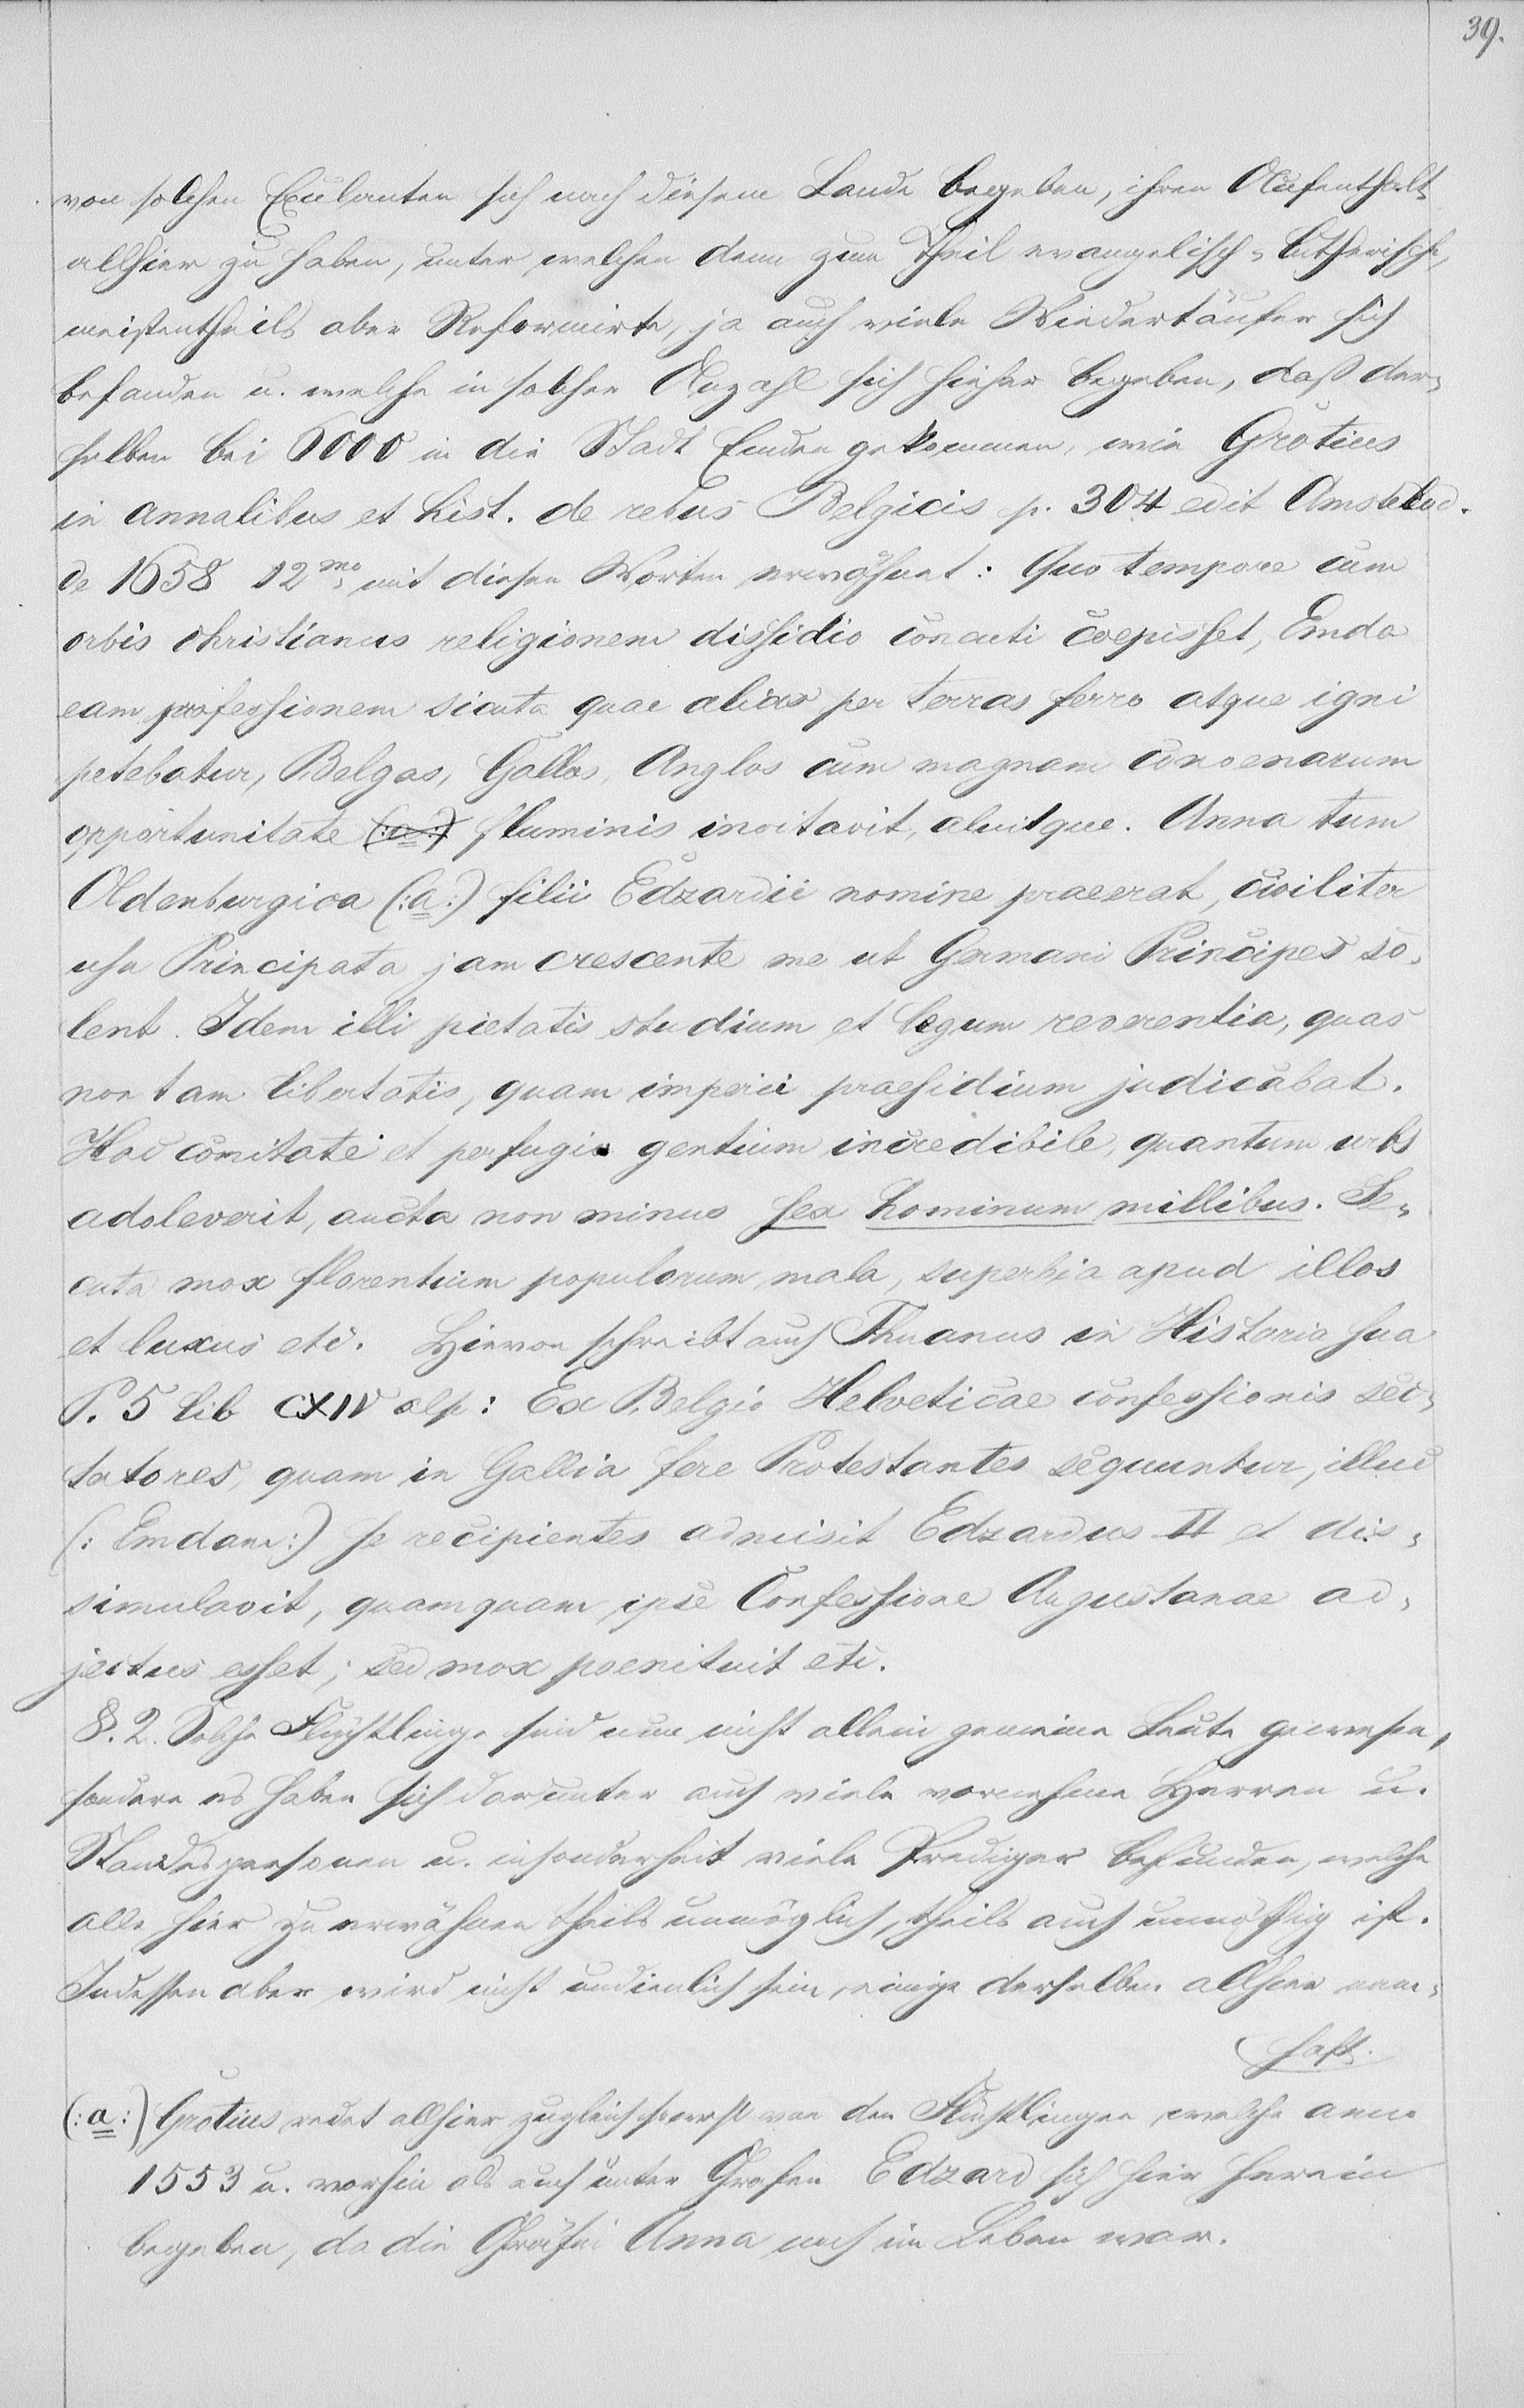 39.
von solchen Exulanten sich nach diesem Lande begeben, ihren Aufenthalt
allhier zu haben, unter welchen denn zum Theil evangelisch-Lutherische,
meistentheils aber Reformirte, ja auch viele Wiedertäufer sich
befanden u. welche in solcher Anzahl sich hieher begeben, daß der-
selben bei 6000 in die Stadt Emden gekommen, wie Grotius
in annalibus et hist. de rebus Belgicis p. 304 edit Amstelod.
de 1658 12mo mit diesen Worten erwöhnet: Quo tempore cum
orbis christianus religionem dissidio concuti coepisset, Emda
eam professionem sicuta quae alias per terras ferro atque igni
petebatur, Belgas, Gallos, Anglos cum magnam convenarum
opportunitate (:a:) fluminis invitavit, aluitque. Anna tum
Oldenburgica (:a:) filii Edzardii nomine praeerat, civiliter
usa Principata jam crescente me ut Germani Principes so-
lent. Idem illi pietatis studium et legum reverentia, quas
non tam libertatis, quam imperii praesidium judicabat.
Hac comitate et perfugio gentium incredibile, quantum urbs
adoleverit, aucta non minus sex hominum millibus. Se-
cuta mox florentium populorum mala, superbia apud illos
et luxus etc. Hiervon schreibt auch Thuanus in Historia sua
P. 5 lib CXIV also: Ex Belgio Helveticae confessionis sec-
tatores, quam in Gallia fere Protestantes sequuntur, illuc
(: Emdam:) se recipientes admisit Edzardus II et dis-
simulavit, quamquam ipse Confessione Augustanae ad-
jectus esset; sed mox poenituit etc.
§. 2. Solche Flüchtlinge sind nun nicht allein gemeine Leute gewesen,
sondern es haben sich darunter auch viele vornehme Herren u.
Standespersonen u. insonderheit viele Prediger befunden, welche
alle hier zu erwähnen theils unmöglich, theils auch unnöthig ist.
Indessen aber wird nicht undienlich sein, einige derselben allhier nam-
haft
(:a:) Grotius redet allhier zugleich sowohl von den Flüchtlingen welche anno
1553 u. vorhin als auch unter Grafen Edzard sich hier herein
begeben, da die Gräfin Anna noch im Leben war.